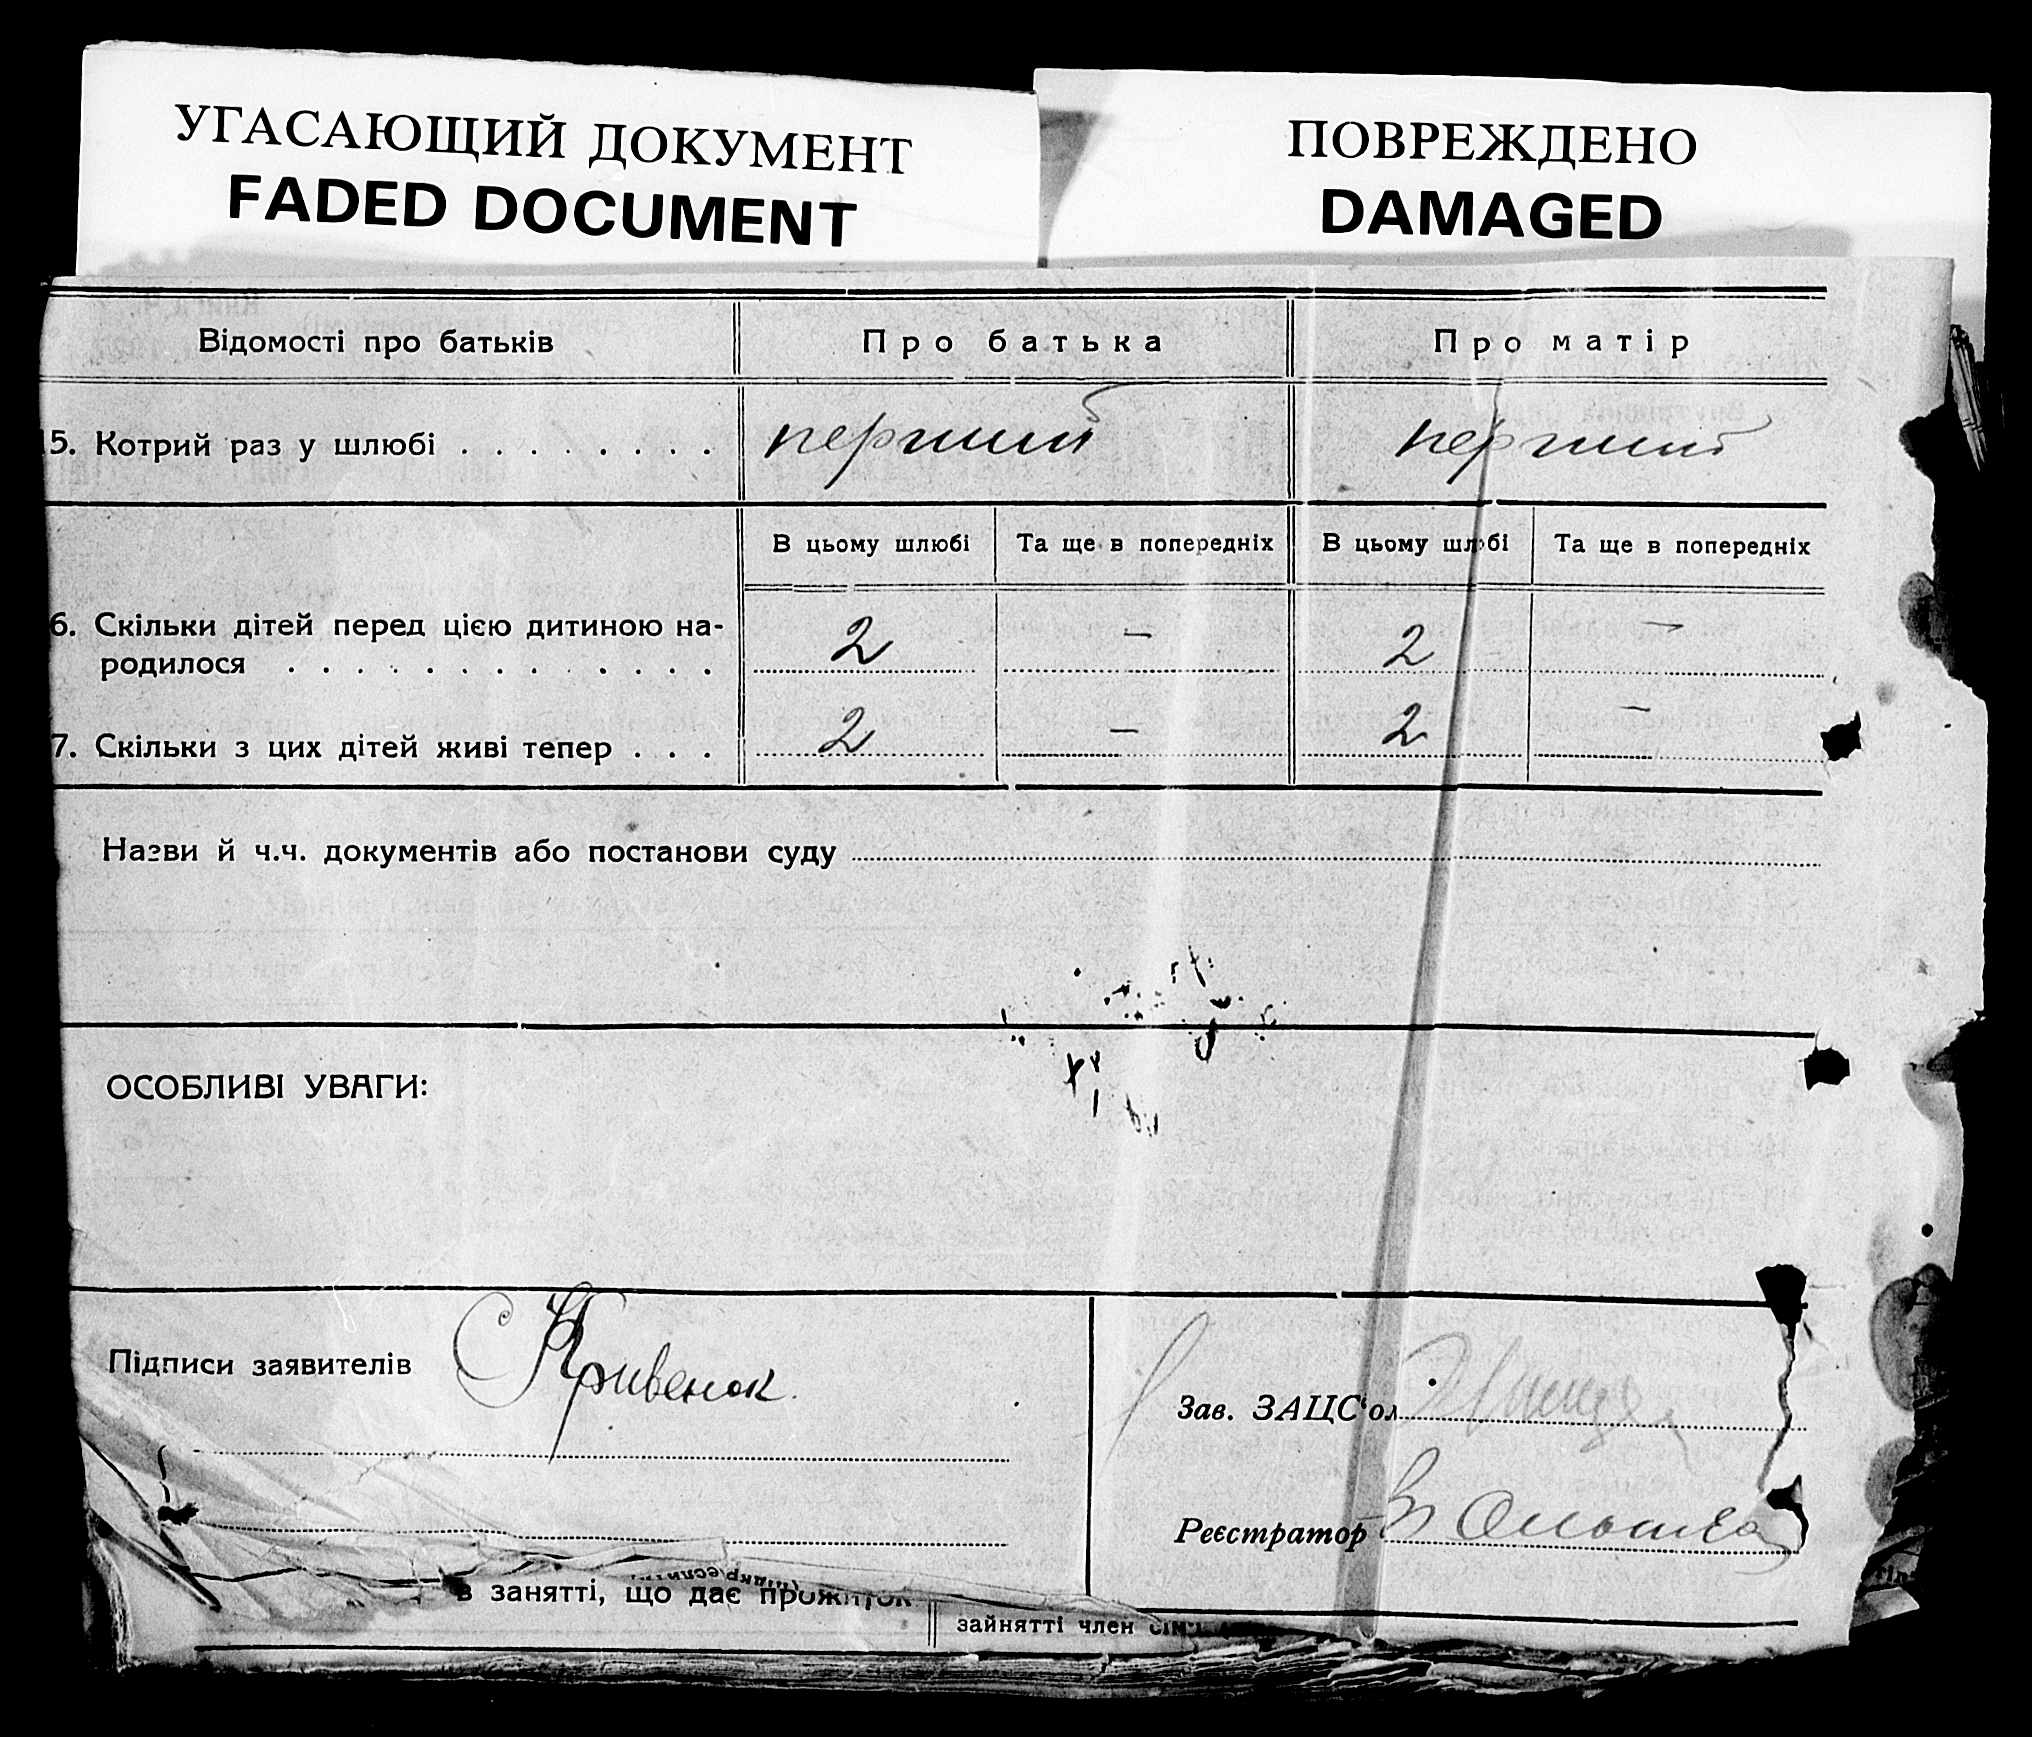 УГАСАЮЩИЙ ДОКУМЕНТ
FADED DOCUMENT
ПОВРЕЖДЕНО
DAMAGED
Відомості про батьків Про батька Про матір
5. Котрий раз у шлюбі . . . . . . . . перший перший
В цьому шлюбі Та ще в попередніх В цьому шлюбі Та ще в попередніх
6. Скільки дітей перед цією дитиною на-
родилося . . . . . . . . . . . . . 2 — 2 —
7. Скільки з цих дітей живі тепер . . . 2 — 2 —
Назви й ч.ч. документів або постанови суду
ОСОБЛИВІ УВАГИ:
Підписи заявителів Кривенок
Зав. ЗАЦС'ол
Реєстратор
в занятті, що дає прожиток
зайнятті член сім'ї